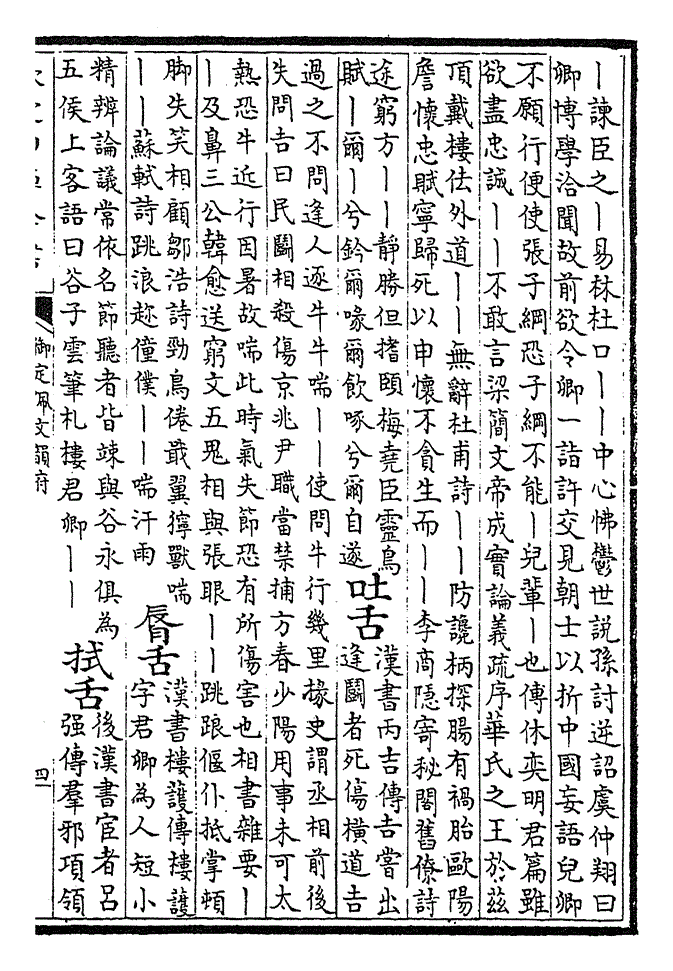 丨諫臣之丨易林杜口丨丨中心怫鬱世説孫討逆詔虞仲翔曰
卿博學洽聞故前欲令卿一詣許交見朝士以折中國妄語兒卿
不願行便使張子綱恐子綱不能丨兒輩丨也傳休奕明君篇雖
欲盡忠誠丨丨不敢言梁簡文帝成實論義疏序華氏之王於茲
頂戴樓佉外道丨丨無辭杜甫詩丨丨防讒柄探腸有禍胎歐陽
詹懷忠賦寧歸死以申懷不貪生而丨丨李商隱寄秘閣舊僚詩
途窮方丨丨靜勝但搘頤梅堯臣靈烏
賦丨爾丨兮鈐爾喙爾飲啄兮爾自遂
吐舌
漢書丙吉傳吉嘗出
逢鬬者死傷橫道吉
過之不問逢人逐牛牛喘丨丨使問牛行幾里掾史謂丞相前後
失問吉曰民鬬相殺傷京兆尹職當禁捕方春少陽用事未可太
熱恐牛近行因暑故喘此時氣失節恐有所傷害也相書雜要丨
丨及鼻三公韓愈送窮文五鬼相與張眼丨丨跳踉偃仆抵掌頓
脚失笑相顧鄒浩詩勁鳥倦戢翼獰獸喘
丨丨蘇軾詩跳浪趁僮僕丨丨喘汗雨
脣舌
漢書樓護傳樓護
字君卿為人短小
精辨論議常依名節聽者皆竦與谷永俱為
五侯上客語曰谷子雲筆札樓君卿丨丨
拭舌
後漢書宦者呂
强傳羣邪項領
御定佩文韻府
四